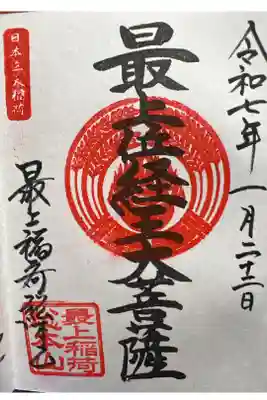 令和七年一月二十二日
最上位経王大菩薩
日本三大稲荷
最上稲荷総本山
最上稲荷
総本山